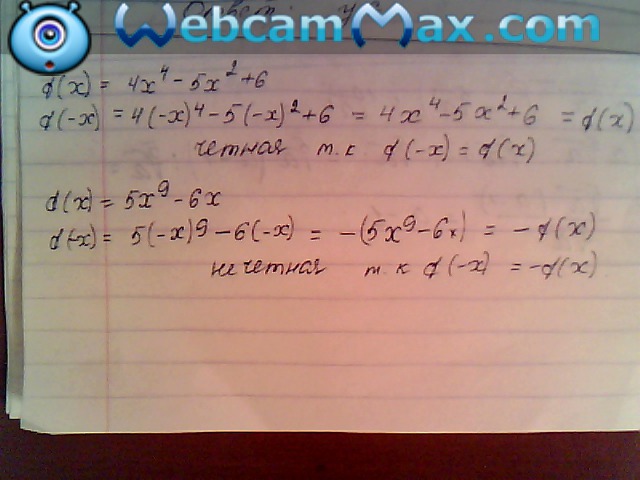 Ответ:
WebcamMax.com
f(x) = 4x⁴ - 5x² + 6
f(-x) = 4(-x)⁴ - 5(-x)² + 6 = 4x⁴ - 5x² + 6 = f(x)
четная т.к f(-x) = f(x)
f(x) = 5x⁹ - 6x
f(-x) = 5(-x)9 - 6(-x) = -(5x⁹ - 6x) = -f(x)
нечетная т.к f(-x) = -f(x)